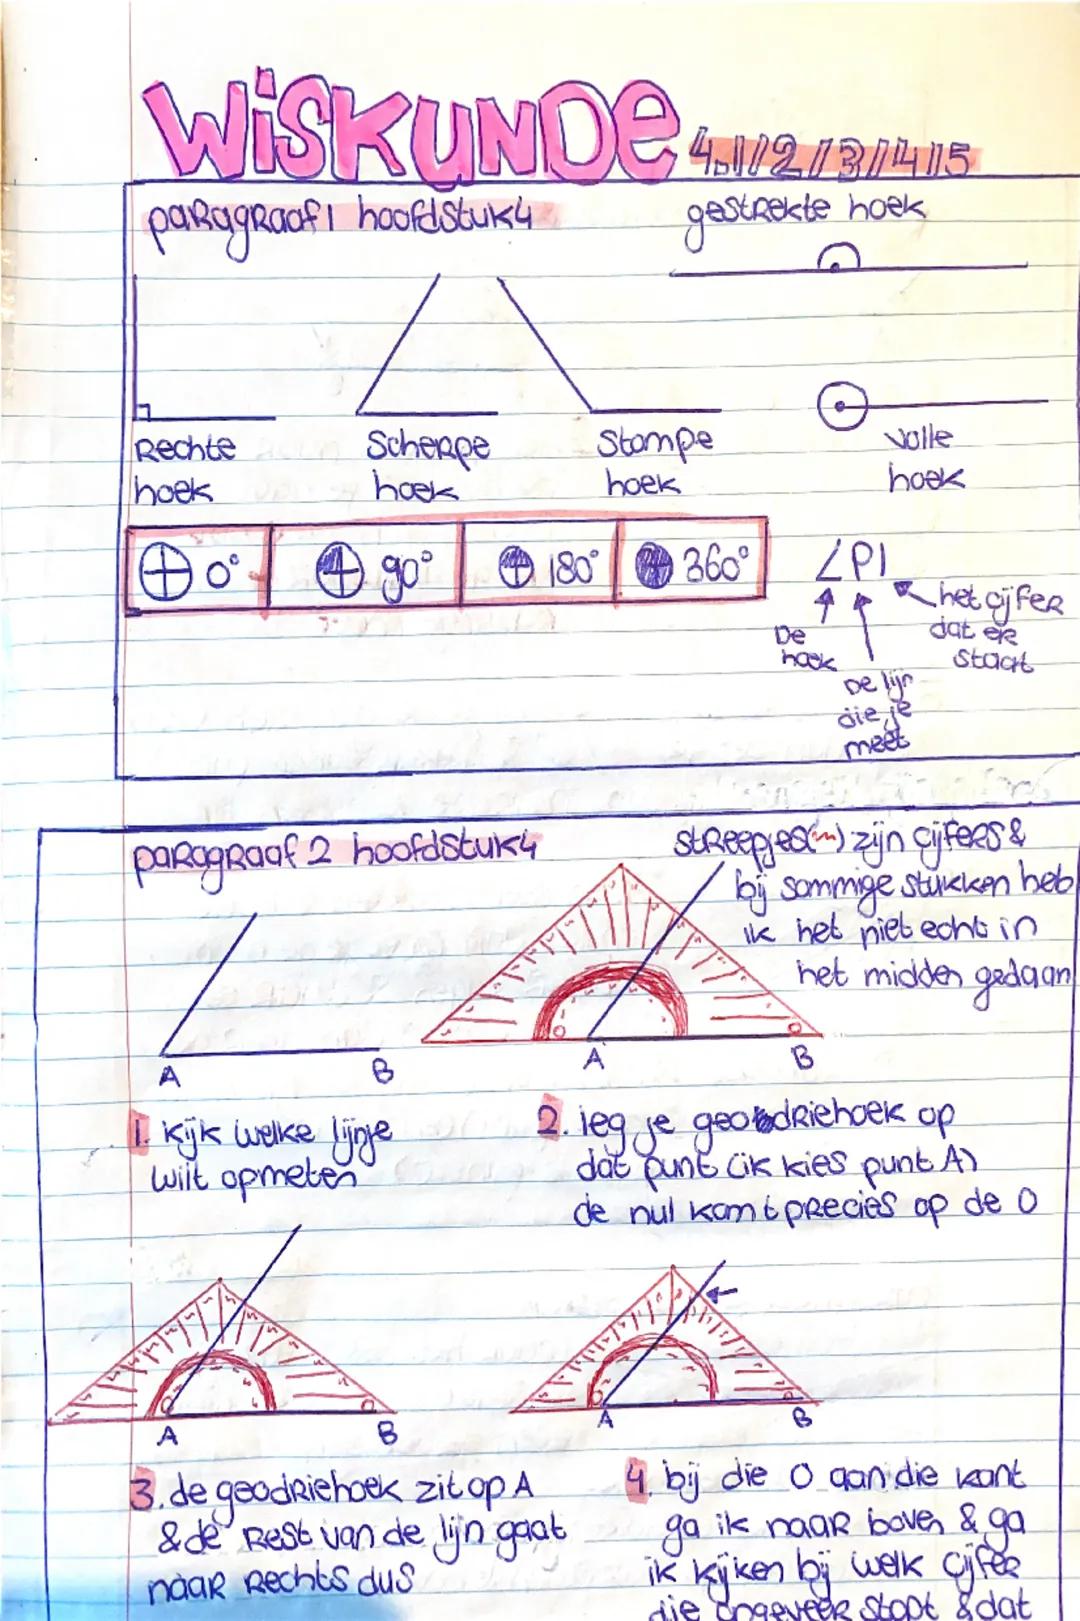 WiSKUNDe 4.1/2/3/4/5
paragraaf 1 hoofdstuk 4
gestrekte hoek
Rechte hoek
Scherpe hoek
Stompe hoek
Volle hoek
0°
90°
180°
360°
∠P1
De hoek
De lijn die je meet
het cijfer dat er staat
paragraaf 2 hoofdstuk 4
streepjes(~) zijn cijfers &
bij sommige stukken heb
ik het niet echt in
het midden gedaan
A B
A B
1. Kijk welke lijnje
wilt opmeten
2. leg je geodriehoek op
dat punt (ik kies punt A)
de nul komt precies op de 0
A B
A B
3. de geodriehoek zit op A
& de rest van de lijn gaat
naar rechts dus
4. bij die 0 aan die kant
ga ik naar boven & ga
ik kijken bij welk cijfer
die ongeveer stopt & dat